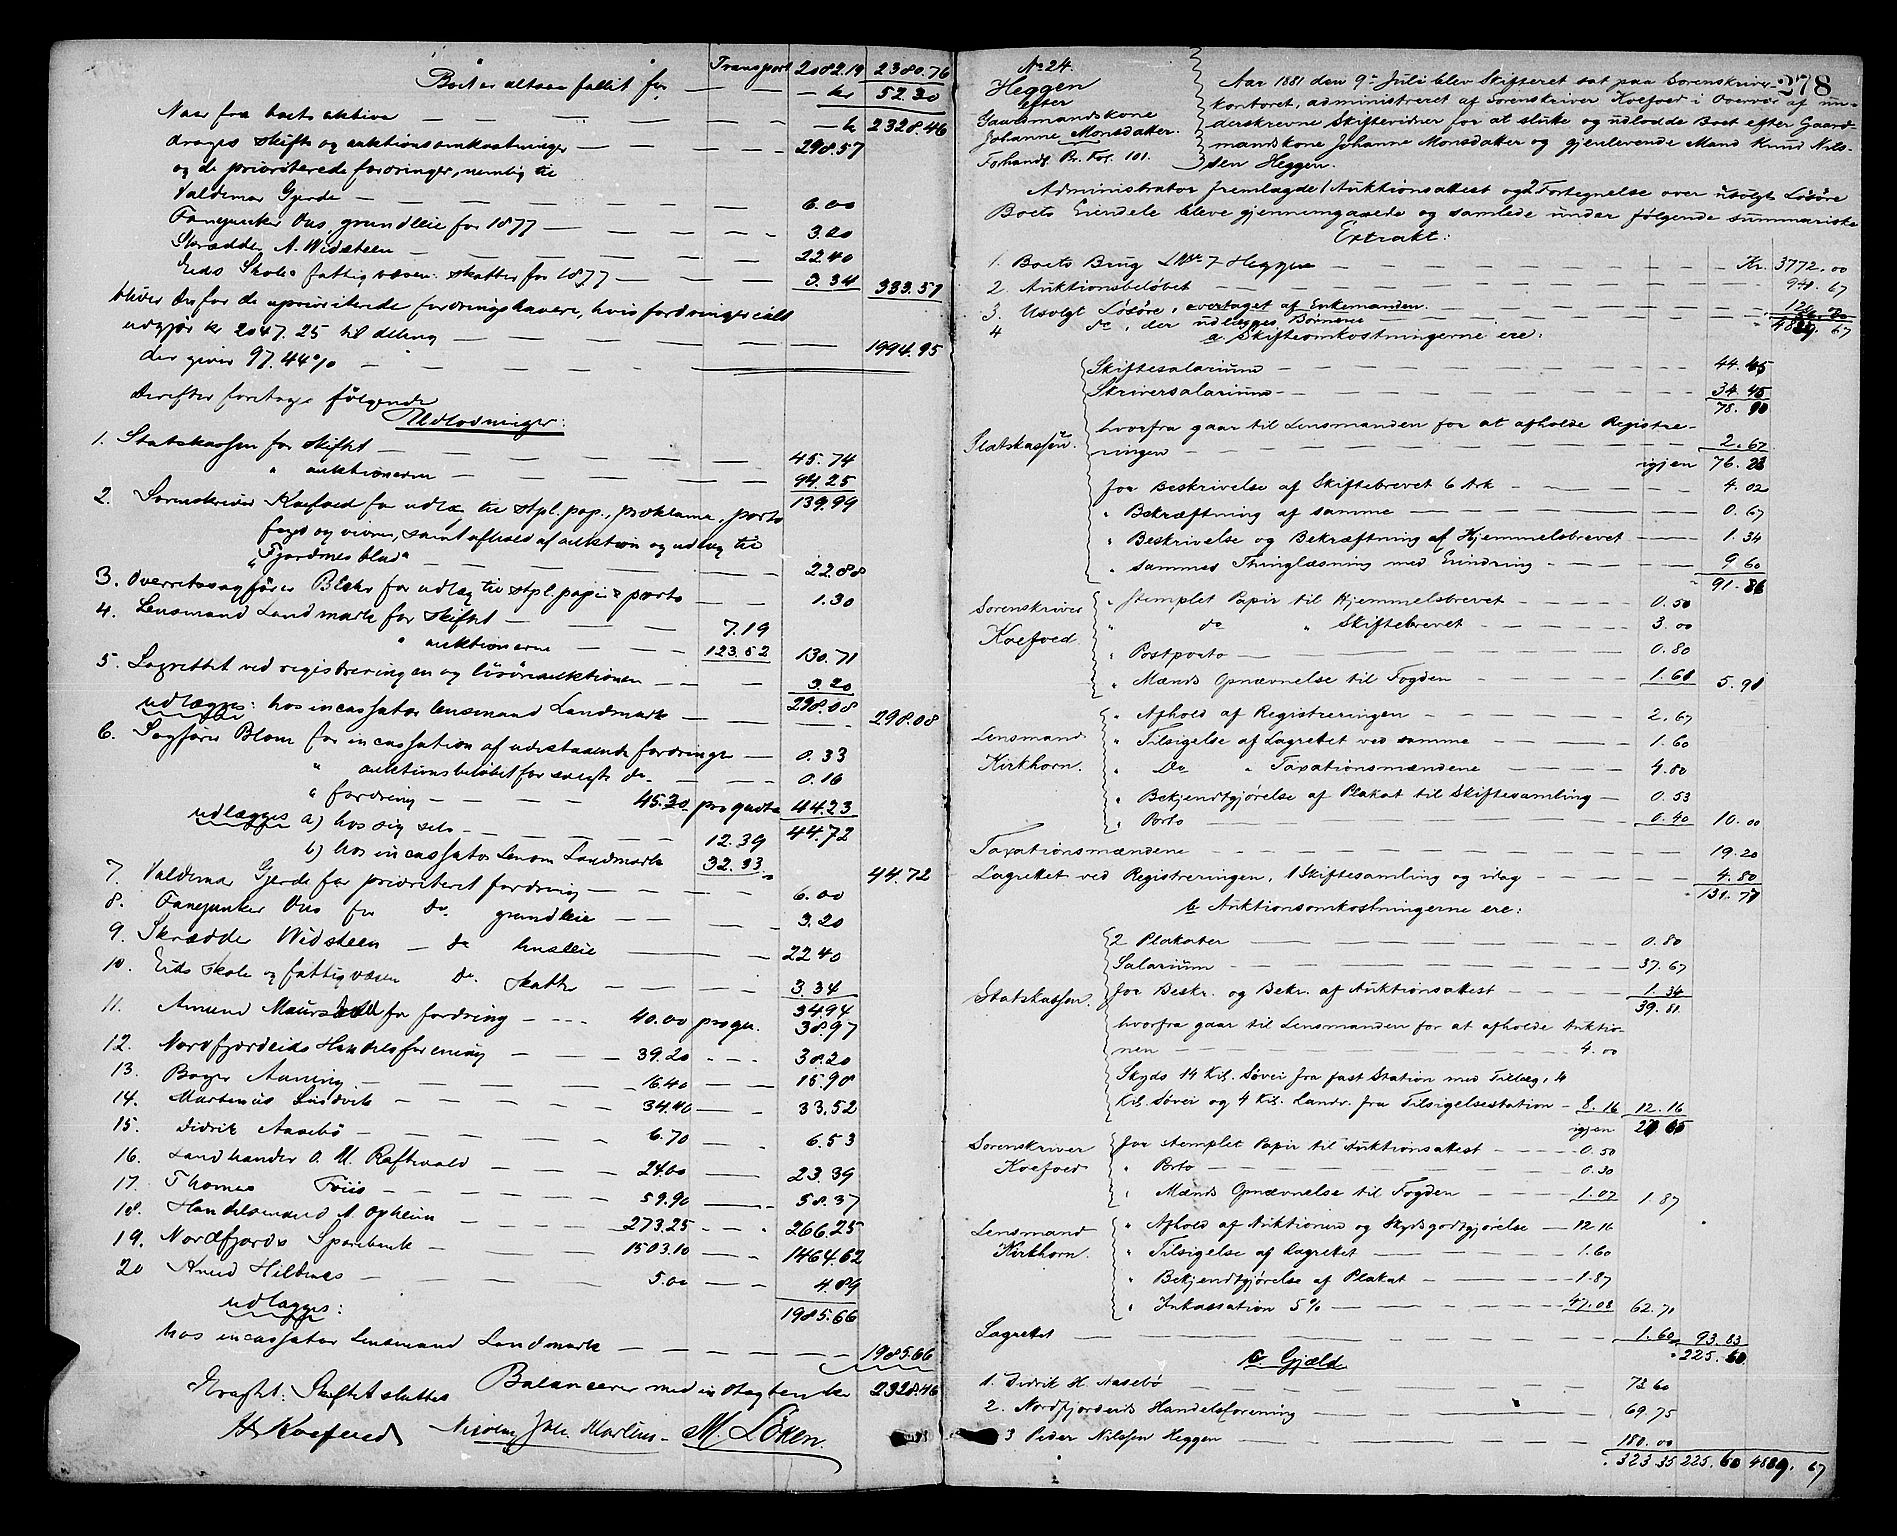 Transport 2082.19 2380.76
Boet er altsaa fallit for — — kr 52.30
Naar fra boets aktiva — — — kr 2328.46
drages skifts og auktionsomkostninger — — 298.57
og de prioriterede fordringer, nemlig til
Valdemar Gjerde — — — 6.00
Fanejunker Dus, grundleie for 1877 — — 3.20
Skrædder A. Widsteen — — — 22.40
Eids Skole & fattigvæsen: skatter for 1877 — — 3.34 333.51
bliver der for de uprioriterede fordringshavere, hvis fordringer ialt
udgjør kr 2047.25 til deling — — — 1994.95
der giver 97.44% — — —
Derefter foretoges følgende
Udlodninger:
1. Statskassen for skiftet — — — 45.74
" auktionerne — — — 94.25
139.99
2. Sorenskriver Koefoed for udlæg til stpl. pap., proklama, porto
" Fjordenes blad" — — — 22.88
3. Overretssagfører Blehr for udlæg til stpl. papir & porto — — 1.30
4. Lensmand Landmark for skiftet — — — 7.19
" auktionerne — — — 123.52 130.71
5. Lagrettet ved registreringen og løsøreauktionen — — 3.20
298.08
udlægges: hos incassator lensmand Landmark — — — 298.08
6. Sagfører Blom for incassation af udestaaende fordringer — 0.33
" auktionsbeløbet for solgte do. — — 0.16
" fordring — — — 45.30 pro quota 44.23
udlægges a) hos sig selv — — — 12.39 44.72
b) hos incassator Lensm Landmark 32.33 44.72
7. Valdemar Gjerde for prioriteret fordring — — 6.00
8. Fanejunker Dus for do. grundleie — — 3.20
9. Skrædder Widsteen — do husleie — — 22.40
10. Eids skole og fattigvæsen do. skatter — — — 3.34
34.94
11. Amund Maurstad for fordring — — 40.00 pro qu. 38.97
12. Nordfjordeids Handelsforening — — 39.20 - - - 38.20
13. Boger Aaning — — 16.40 — — 15.98
14. Martenius Lindvik — — 34.40 — — 33.52
15. Didrik Aasebø — — 6.70 — — 6.53
16. Landhandler O. M. Raftevold — — 24.00 — 23.39
17. Thomas Friis — — 59.90 — — 58.37
18. Handelsmand A. Opheim — — 273.25 - - - 266.25
19. Nordfjords Sparebank — — 1503.10 — — 1464.62
20 Anud Hildenes — — 5.00 — — 4.89
udlægges: 1985.66
hos incassator Lensmand Landmark — — — 1985.66
Skiftet sluttes Balancerer med indtægten kr 2328.46
Koefoed Nicolay Joh. Martins. M. Løken.
278
No 24.
Heggen
efter
Gaardmandskone
Johanne Monsdatter.
Forhandl. Pr. Fol. 101.
Aar 1881 den 9de Juli blev Skifteret sat paa Sorenskriver-
kontoret, administreret af Sorenskriver Koefoed i Overvær af un-
derskrevne Skiftevidner for at slutte og udlodde Boet efter Gaard-
mandskone Johanne Monsdatter og gjenlevende Mand Knud Nils-
sen Heggen.
Administrator fremlagde 1 Auktionsattest og 2 Fortegnelse over usolgt Løsøre
Boets Eiendele bleve gjennemgaaede og samlede under følgende summariske
Extrakt:
1. Boets Brug LNr 7 Heggen — — — Kr. 3772.00
2. Auktionsbeløbet — — — 941.67
3. Usolgt Løsøre, overtaget af Enkemanden. — —
4 do, der udlægges Børnene — — — 4889.67
a. Skifteomkostningerne ere:
Skiftesalarium — — — 44.45
Skriversalarium — — — 34.45
78.90
Statskassen. hvorfra gaar til Lensmanden for at afholde Registre-
ringen — — — 2.67
igjen 76.23
for Beskrivelse af Skiftebrevet 6 Ark — — 4.02
" Bekræftning af samme — — — 0.67
" Beskrivelse og Bekræftning af Hjemmelsbrevet — 1.34
" sammes Thinglæsning med Erindring — — 9.60
91.86
Sorenskriver Koefoed. " stemplet Papir til Hjemmelsbrevet — — 0.50
" do " Skiftebrevet — — 3.00
" Postporto — — — 0.80
" Mænds Opnævnelse til Fogden — — 1.61 5.91
Lensmand Kirkhorn. " Afhold af Registreringen — — 2.67
" Tilsigelse af Lagrettet ved samme — — 1.60
" Do " Taxationsmændene — — 4.80
" Bekjendtgjørelse af Plakat til Skiftesamling — 0.53
" Porto — — — 0.40 10.00
Taxationsmændene — — — 19.20
Lagrettet ved Registreringen, 1 Skiftesamling og idag — — 4.80
131.77
b Auktionsomkostningerne ere:
Statskassen. 2 Plakater — — — 0.80
Salarium — — — 37.67
for Beskr. og Bekr. af Auktionsattest — — 1.34
39.81
hvorfra gaar til Lensmanden for at afholde Auktio-
nen — — — 4.00
Skyds 14 Kil. Søvei fra fast Station med Tillæg, 4
Kil. Søvei og 4 Kil. Landv. fra Tilsigelsesstation — 8.16 12.16
igjen 27.65
Sorenskriver Koefoed for stemplet Papir til Auktionsattest — — 0.50
" Porto — — — 0.30
" Mænds Opnævnelse til Fogden — — 1.07 1.87
Lensmand Kirkhorn. " Afhold af Auktionen og Skydsgodtgjørelse — 12.16
" Tilsigelse af Lagrettet — — 1.60
" Bekjendtgjørelse af Plakat — — 1.87
" Inkassation 5% — — — 47.08 62.71
Lagrettet — — — 1.60 93.83
225.60
c. Gjæld
1. Didrik H. Aasebø — — — 73.60
2. Nordfjordeids Handelsforening — — — 69.75
3 Peder Nilssen Heggen — — — 180.00
323.35 225.60 4889.67